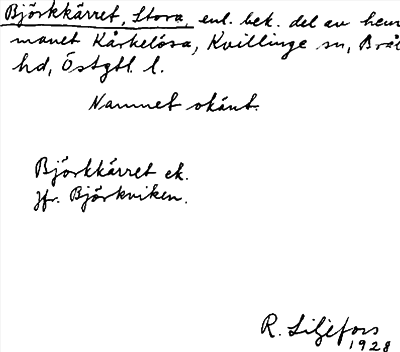 Björkkärret, Stora, enl. bek. del av hem
manet Kårkelösa, Kvillinge sn, Brå
hd, Östgtl. l.
Namnet okänt.
Björkkärret ek.
jfr. Björkviken.
R. Liljefors
1928